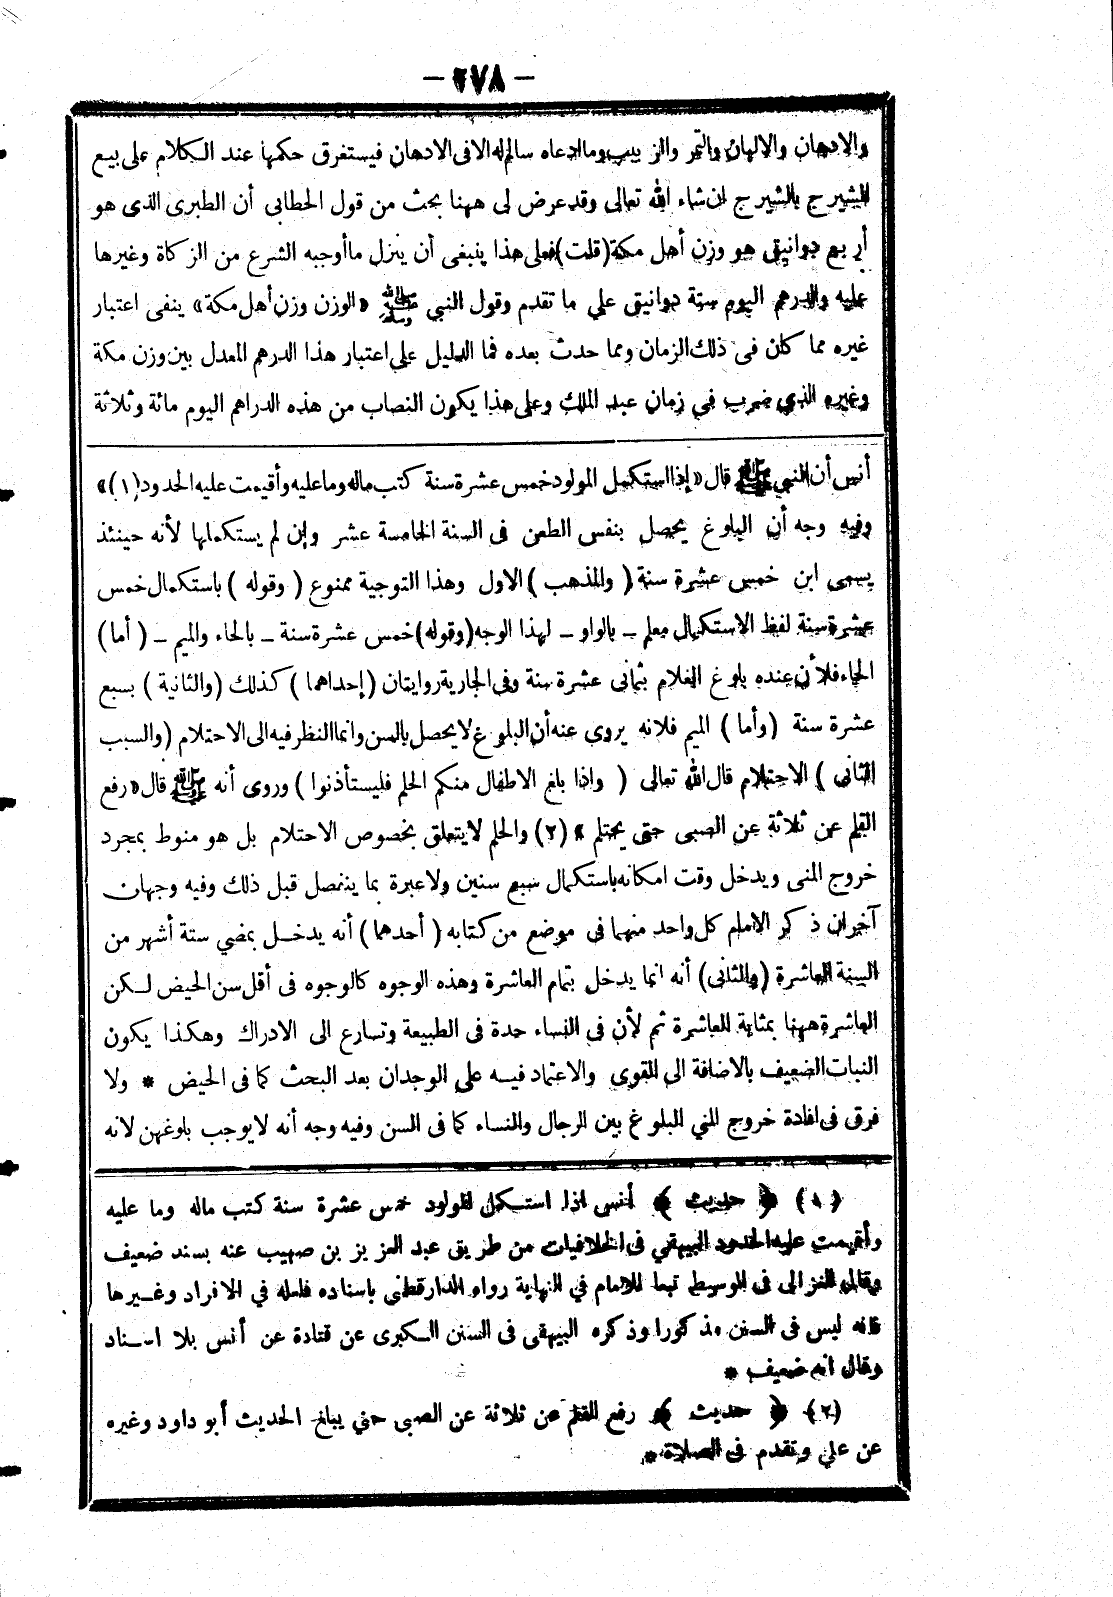 — ٢٧٨ —
والادهان والالبان والتمر والزبيب وما ادعاه سالم له الا فى الادهان فيستغرق حكمها عند الكلام على بيع
الشيرج بالشيرج ان شاء الله تعالى وقد عرض لى ههنا بحث من قول الخطابى أن الطبرى الذى هو
أربع دوانيق هو وزن أهل مكة (قلت) فعلى هذا ينبغى أن ينزل ما أوجبه الشرع من الزكاة وغيرها
عليه والدرهم اليوم ستة دوانيق علي ما تقدم وقول النبي ﷺ «الوزن وزن أهل مكة» ينفى اعتبار
غيره مما كان فى ذلك الزمان ومما حدث بعده فما الدليل علي اعتبار هذا الدرهم المعدل بين وزن مكة
وغيره الذي ضرب في زمان عبد الملك وعلى هذا يكون النصاب من هذه الدراهم اليوم مائة وثلاثة
أنس أن النبي ﷺ قال «إذا استكمل المولود خمس عشرة سنة كتب ماله وما عليه وأقيمت عليه الحدود (١)»
وفيه وجه أن البلوغ يحصل بنفس الطعن فى السنة الخامسة عشر وإن لم يستكملها لأنه حينئذ
يسمى ابن خمس عشرة سنة (والمذهب) الاول وهذا التوجية ممنوع (وقوله) باستكمال خمس
عشرة سنة لفظ الاستكمال معلم ــ بالواو ــ لهذا الوجه (وقوله) خمس عشرة سنة ــ بالحاء والميم ــ (أما)
الحاء فلأن عنده بلوغ الغلام بثمانى عشرة سنة وفى الجارية روايتان (إحداهما) كذلك (والثانية) بسبع
عشرة سنة (وأما) الميم فلانه يروى عنه أن البلوغ لا يحصل بالسن وانما النظر فيه الى الاحتلام (والسبب
الثانى) الاحتلام قال الله تعالى (واذا بلغ الاطفال منكم الحلم فليستأذنوا) وروى أنه ﷺ قال «رفع
القلم عن ثلاثة عن الصبى حتى يحتلم» (٢) والحلم لا يتعلق بخصوص الاحتلام بل هو منوط بمجرد
خروج المنى ويدخل وقت امكانه باستكمال سبع سنين ولا عبرة بما ينفصل قبل ذلك وفيه وجهان
آخران ذكر الامام كل واحد منهما فى موضع من كتابه (أحدهما) أنه يدخل بمضي ستة أشهر من
السنة العاشرة (والثانى) أنه انما يدخل بتمام العاشرة وهذه الوجوه كالوجوه فى أقل سن الحيض لكن
العاشرة ههنا بمثابة للعاشرة ثم لأن فى النساء حدة فى الطبيعة وتسارع الى الادراك وهكذا يكون
النبات الضعيف بالاضافة الى القوى والاعتماد فيه على الوجدان بعد البحث كما فى الحيض * ولا
فرق فى افادة خروج المني البلوغ بين الرجال والنساء كما فى السن وفيه وجه أنه لا يوجب بلوغهن لانه
(١) ﴿ حديث ﴾ أنس اذا استكمل المولود خمس عشرة سنة كتب ماله وما عليه
وأقيمت عليه الحدود البيهقي فى الخلافيات من طريق عبد العزيز بن صهيب عنه بسند ضعيف
وقال الغزالى فى الوسيط تبعا للامام في النهاية رواه الدارقطنى باسناده فلعله في الافراد وغيرها
فانه ليس فى السنن مذكورا وذكره البيهقى فى السنن الكبرى عن قتادة عن أنس بلا اسناد
وقال انه ضعيف *
(٢) ﴿ حديث ﴾ رفع القلم عن ثلاثة عن الصبى حتي يبلغ الحديث أبو داود وغيره
عن علي وتقدم فى الصلاة *